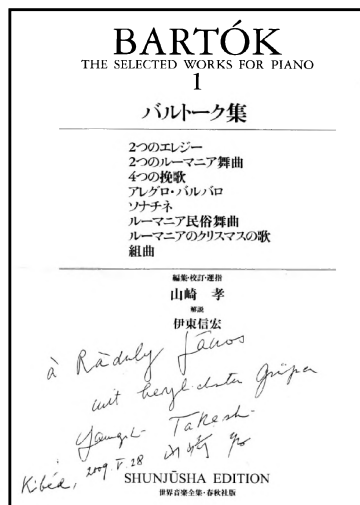 BARTÓK
THE SELECTED WORKS FOR PIANO
1
バルトーク集
2つのエレジー
2つのルーマニア舞曲
4つの挽歌
アレグロ・バルバロ
ソナチネ
ルーマニア民俗舞曲
ルーマニアのクリスマスの歌
組曲
編集・校訂・運指
山崎 孝
解説
伊東信宏
à Ráduly János
mit herzlichsten Grüßen
Takeshi
山崎 孝
Kibéd, 2009. V. 28
SHUNJŪSHA EDITION
世界音楽全集・春秋社版